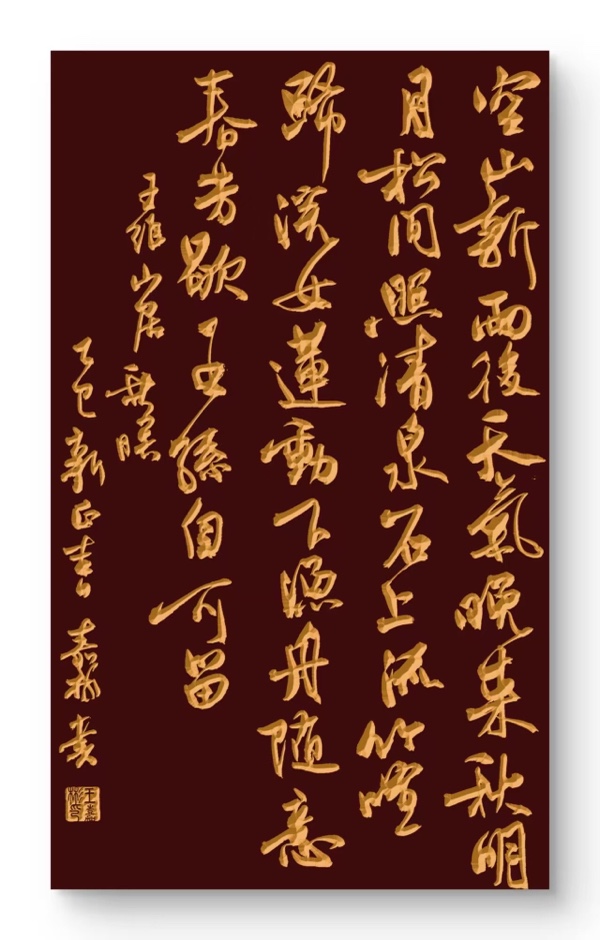 空山新雨後天氣晚來秋明
月松間照清泉石上流竹喧
歸浣女蓮動下漁舟隨意
春芳歇王孫自可留
王維山居秋暝
乙巳新正吉日嘉彬書
王嘉彬印